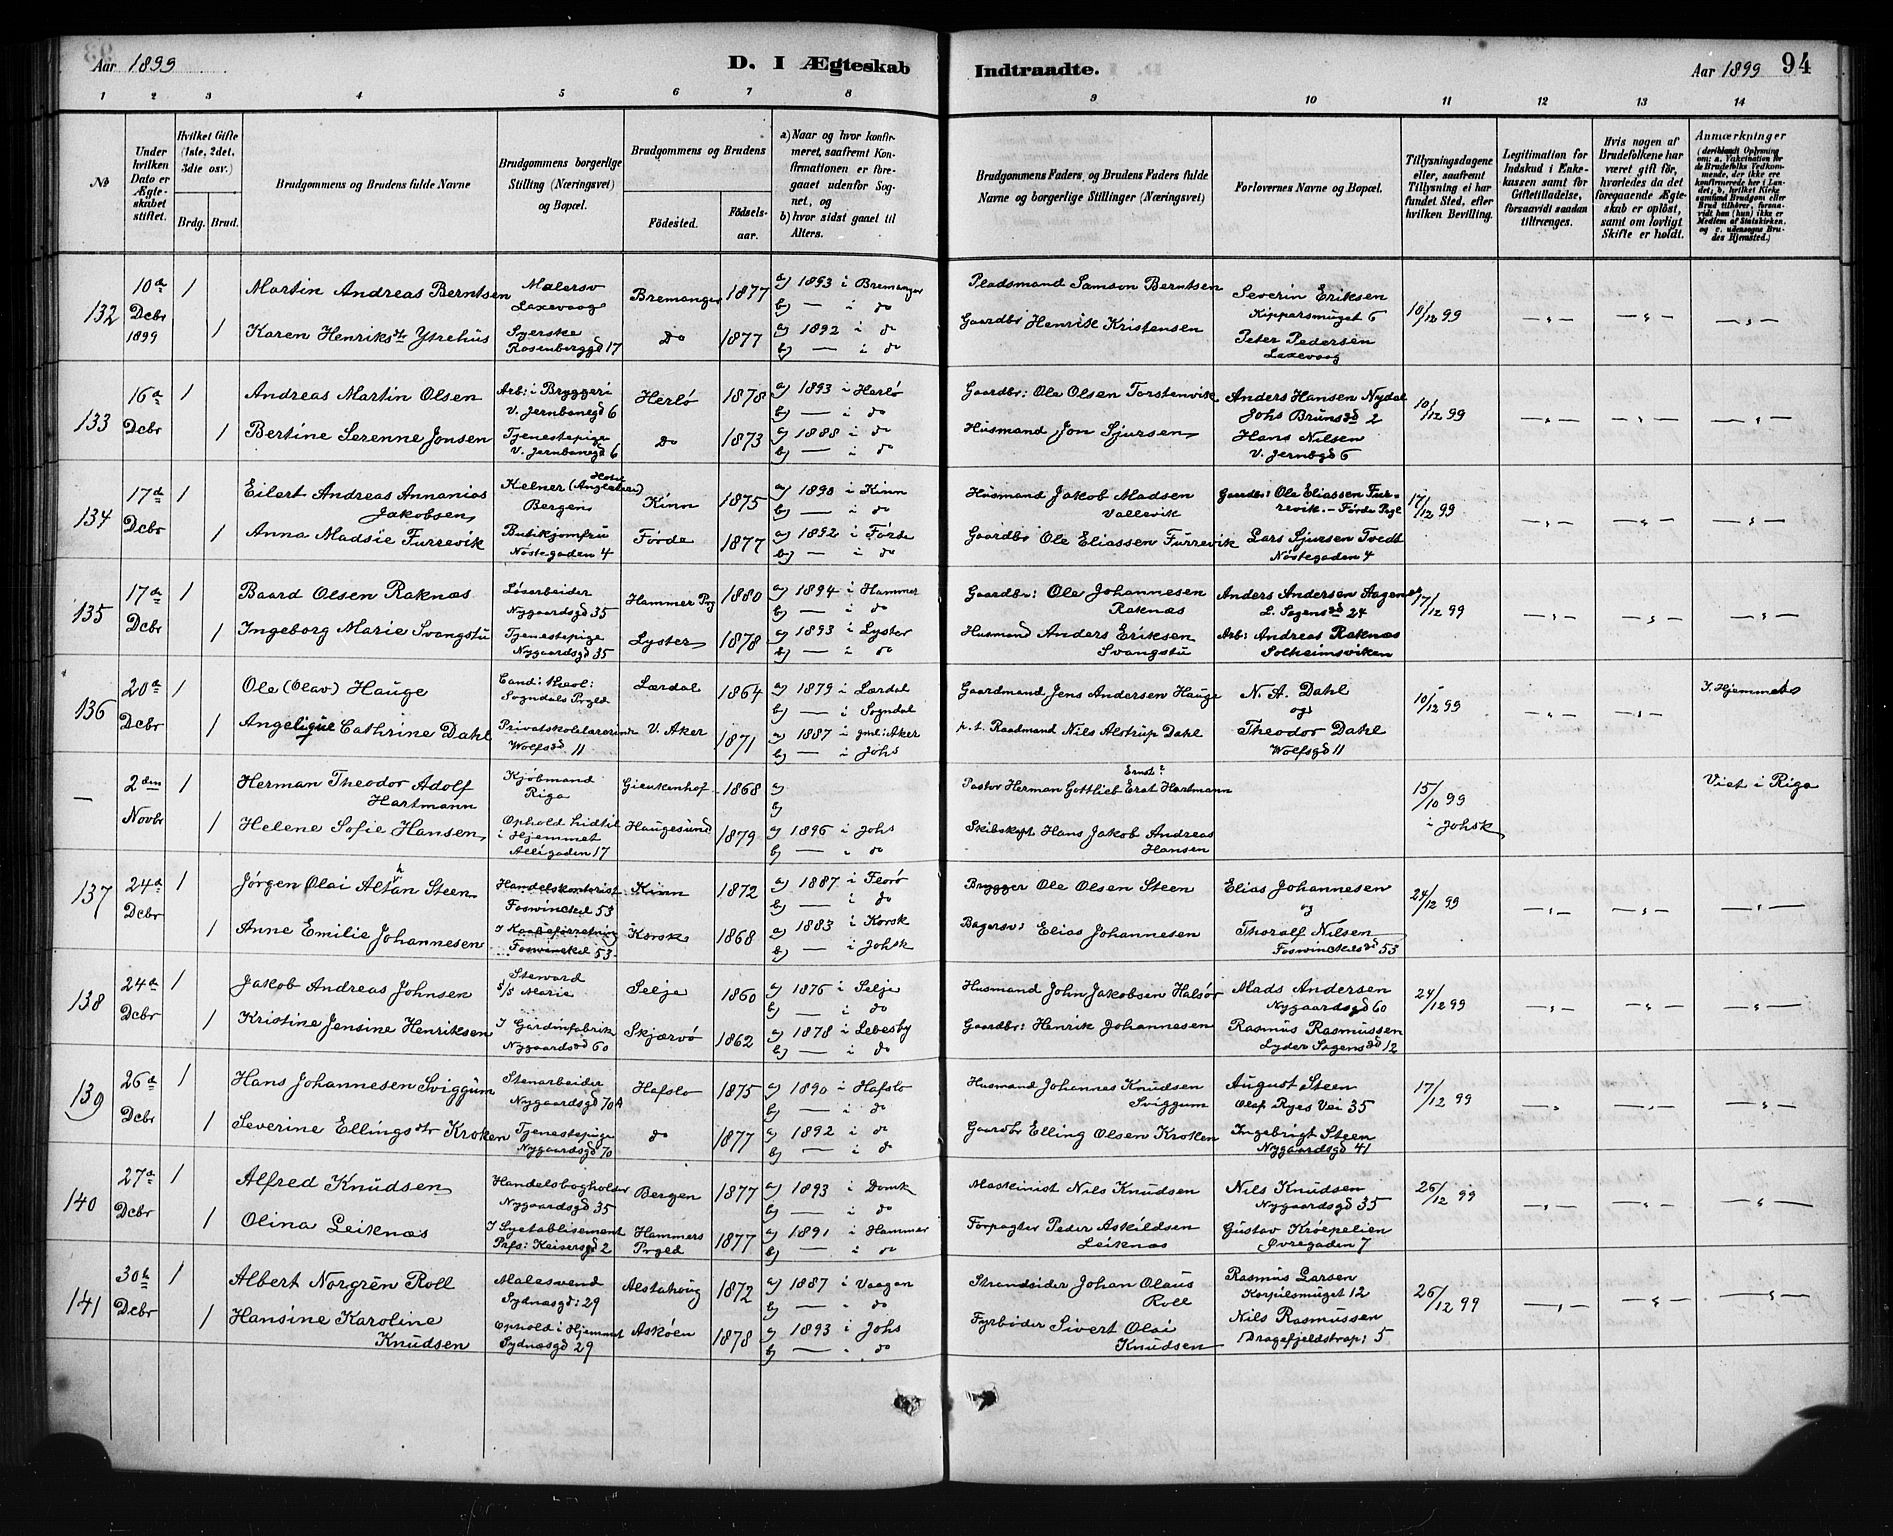 Aar 1899
D. I Ægteskab Indtraadte.
Aar 1899 94
1 2 3 4 5 6 7 8 9 10 11 12 13 14
No
Under hvilken Dato er Ægteskabet stiftet.
Hvilket Gifte (1ste, 2det, 3die osv.)
Brdg. Brud.
Brudgommens og Brudens fulde Navne
Brudgommens borgerlige Stilling (Næringsvei) og Bopæl.
Brudgommens og Brudens
Fødested. Fødselsaar.
a) Naar og hvor konfirmeret, saafremt Konfirmationen er foregaaet udenfor Sognet, og
b) hvor sidst gaaet til Alters.
Brudgommens Faders og Brudens Faders fulde Navne og borgerlige Stillinger (Næringsvei)
Forlovernes Navne og Bopæl.
Tillysningsdagene eller, saafremt Tillysning ei har fundet Sted, efter hvilken Bevilling.
Legitimation for Indskud i Enkekassen samt for Giftetilladelse, forsaavidt saadan tiltrænges.
Hvis nogen af Brudefolkene har været gift før, hvorledes da det foregaaende Ægteskab er opløst, samt om lovligt Skifte er holdt.
Anmærkninger (deriblandt Oplysning om: a. Vakcination for de Brudefolks Vedkommende, der ikke ere konfirmerede her i Landet, b. hvilket Kirkesamfund Brudgom eller Brud tilhører, forsaavidt han (hun) ikke er Medlem af Statskirken, og c. udensogns Brudes Hjemsted.)
132 10de Dcbr 1899 1 Martin Andreas Berntsen Malersv Laxevaag Bremanger 1877 a) 1893 i Bremanger b) — i do Pladsmand Samson Berntsen Severin Eriksen Kippersmuget 6 10/12 99 —„— —„— —„—
1 Karen Henriksdtr Ytrehus Syerske Rosenberggd 17 Do 1877 a) 1892 i do b) — i do Gaardbr Henrik Kristensen Peter Pedersen Laxevaag
133 16de Dcbr 1 Andreas Martin Olsen Arb: i Bryggeri V. Jernbanegd 6 Herlø 1878 a) 1893 i Herlø b) — i do Gaardbr: Ole Olsen Torstenvik Anders Hansen Nydal Johs Brunsgd 2 10/12 99 —„— —„— —„—
1 Bertine Serenne Jonsen Tjenestepige V. Jernbanegd 6 Do 1873 a) 1888 i do b) — i do Husmand Jon Sjursen Hans Nilsen V. Jernbgd 6
134 17de Dcbr 1 Eilert Andreas Annanias Jakobsen Kelner (Hotel Angleterre) Bergen Kinn 1875 a) 1890 i Kinn b) — i do Husmand Jakob Madsen Vallevik Gaardbr: Ole Eliassen Furrevik. - Førde Pgl 17/12 99 —„— —„— —„—
1 Anna Madsie Furrevik Butikjomfru Nøstegaden 4 Førde 1877 a) 1892 i Førde b) — i do Gaardbr Ole Eliassen Furrevik Lars Sjursen Tvedt Nøstegaden 4
135 17de Dcbr 1 Baard Olsen Raknæs Løsarbeider Nygaardsgd 35 Hammer Pg 1880 a) 1894 i Hammer b) — i do Gaardbr: Ole Johannesen Raknæs Anders Andersen L. Sagensgd 24 17/12 99 —„— —„— —„—
1 Ingeborg Marie Svangstu Tjenestepige Nygaardsgd 35 Lyster 1878 a) 1893 i Lyster b) — i do Husmand Anders Eriksen Svangstu Arb: Andreas Raknæs Solheimsviken
136 20de Dcbr 1 Ole (Olav) Hauge Cand: theol: Sogndals Prgld Lærdal 1864 a) 1879 i Lærdal b) — i Sogndal Gaardmand Jens Andersen Hauge N. A. Dahl og 10/12 99 —„— —„— I Hjemmet
1 Angelique Cathrine Dahl Privatskolelærerinde Wolfsgd 11 V. Aker 1871 a) 1887 i gml: Aker b) — i Johs p. t. Raadmand Nils Alstrup Dahl Theodor Dahl Wolfsgd 11
— 2den Novbr 1 Herman Theodor Adolf Hartmann Kjøbmand Riga 1868 a) b) Pastor Herman Gottlieb Erst Ernst? Hartmann 15/10 99 i Johsk Viet i Riga
1 Helene Sofie Hansen Ophold hidtil i Hjemmet Allégaden 17 Haugesund 1879 a) 1896 i Johs b) — i do Skibskapt Hans Jakob Andreas Hansen
137 24de Dcbr 1 Jørgen Olai Altan h Steen Handelskontorist Foswinckel 53 Kinn 1872 a) 1887 i Florø b) — i do Brygger Ole Olsen Steen Elias Johannesen og 24/12 99 —„— —„— —„—
1 Anne Emilie Johannesen I Kaabeforretning Foswinckel 53 Korsk 1868 a) 1883 i Korsk b) — i Johsk Bagersv: Elias Johannesen Thoralf Nilsen Foswinckelsgd 53
138 24de Dcbr 1 Jakob Andreas Johnsen Steward S/S Marie Selje 1860 a) 1876 i Selje b) — i do Husmand John Jakobsen Halsør Mads Andersen Nygaardsgd 60 24/12 99 —„— —„— —„—
1 Kristine Jensine Henriksen I Gardinfabrik Nygaardsgd 60 Skjærvø 1862 a) 1878 i Lebesby b) — i do Gaardbr: Henrik Johannesen Rasmus Rasmussen Lyder Sagensgd 12
139 26de Dcbr 1 Hans Johannesen Sviggum Stenarbeider Nygaardsgd 70A Hafslo 1875 a) 1890 i Hafslo b) — i do Husmand Johannes Knudsen Sviggum August Steen Olaf Ryes Vei 35 17/12 99 —„— —„— —„—
1 Severine Ellingsdtr Kroken Tjenestepige Nygaardsgd 70 do 1877 a) 1892 i do b) — i do Gaardbr Elling Olsen Kroken Ingebrigt Steen Nygaardsgd 41
140 27de Dcbr 1 Alfred Knudsen Handelsbogholder Nygaardsgd 35 Bergen 1877 a) 1893 i Domk b) — i do Maskinist Nils Knudsen Nils Knudsen Nygaardsgd 35 26/12 99 —„— —„— —„—
1 Olina Leiknæs I Syetablisement Prfs: Keisersgd 2 Hammers Prgld 1877 a) 1891 i Hammer b) — i do Forpagter Peder Askildsen Leiknæs Gustav Krøepelien Øvregaden 7
141 30te Dcbr 1 Albert Norgrén Roll Malesvend Sydnæsgd: 29 Alstahoug 1872 a) 1887 i Vaagan b) — i do Strandsider Johan Olaus Roll Rasmus Larsen Korpilsmuget 12 26/12 99 —„— —„— —„—
1 Hansine Karoline Knudsen Ophold i Hjemmet Sydnæsgd 29 Askøen 1878 a) 1893 i Johs b) — i do Fyrbøder Sivert Olai Knudsen Nils Rasmussen Dragefjeldstrap: 5